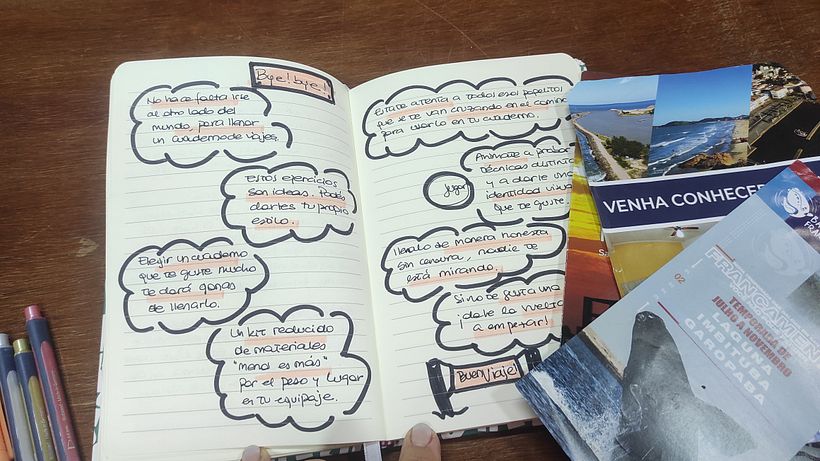 Bye! bye!
No hace falta irse
al otro lado del
mundo, para llenar
un cuaderno de viajes.
Estos ejercicios
son ideas. Podés
darles tu propio
estilo.
Elegir un cuaderno
que te guste mucho
te dará ganas
de llenarlo.
Un kit reducido
de materiales
"menos es más"
por el peso y lugar
en tu equipaje.
Estate atenta a todos esos papelitos
que se te van cruzando en el camino
para usarlo en tu cuaderno.
Animate a probar
técnicas distintas
y a darle una
identidad visual
que te guste
jugar
llenalo de manera honesta
sin censura, nadie te
está mirando.
Si no te gusta una
¡dale la vuelta
a empezar!
Buen Viaje!
VENHA CONHECER
02
TEMPORADA DE
JULHO A NOVEMBRO
IMBITUBA
GAROPABA